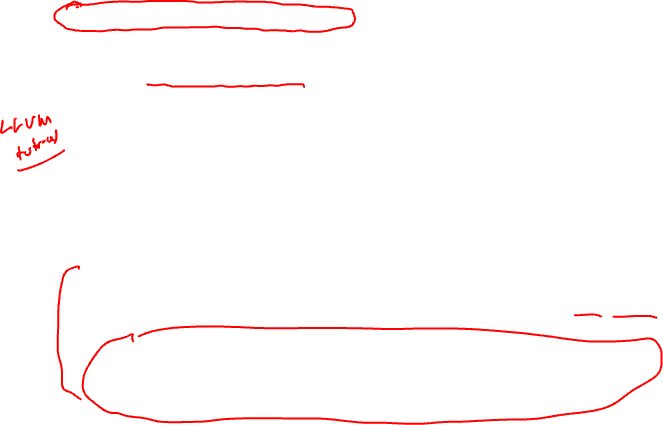 LLVM
tutorial